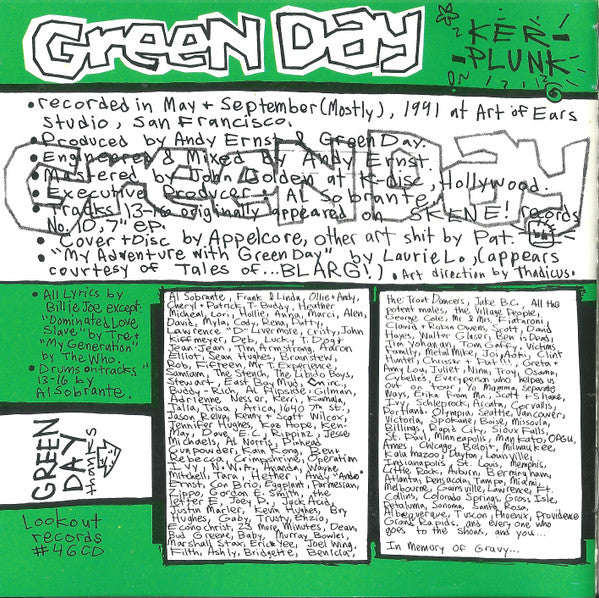 Green Day
KER-
PLUNK
• recorded in May + September (Mostly), 1991 at Art of Ears
Studio, San Francisco.
• Produced by Andy Ernst & Green Day.
• Engineered & Mixed by Andy Ernst
• Mastered by John Golden at K-disc, Hollywood.
• Executive Producer: AL Sobrante.
• Tracks 13-16 originally appeared on SKENE! records
No. 10, 7" ep.
• Cover + Disc by Appelcore, other art shit by Pat.
• "My Adventure with Green Day" by Laurie L., (appears
courtesy of Tales of... BLARG!) • Art direction by Thadicus.
GREEN DAY
• All Lyrics by
Billie Joe except:
"Dominated Love
Slave" by Tre +
"My Generation"
by The Who.
• Drums on tracks
13-16 by
Al Sobrante.
GREEN
DAY
thanks
Lookout
records
#46CD
Al Sobrante, Frank & Linda, Ollie + Andy,
Cheryl + Patrick, T. Buddy, Heather,
Micheal, Lori, Hollie, Anna, Marci, Alen,
David, Myla, Cody, Rena, Patty,
Lawrence "D" Livermore, Cristy, John
Kiffmeyer, Deb, Lucky T. Dog +
Jean-Jean, Tim Armstrong, Aaron
Elliot, Sean Hughes, Brainstew,
Rob, Fifteen, Mr. T. Experience,
Samiam, The Stench, The Lookout Boys,
Stewart, East Bay Mud, Eric,
Buddy-Rich, Al Flipside, Gilman,
Adrienne Nesser, Kerri, Kamala,
Talla, Trisa, Arica, 1640 7th st.,
Jason Relva, Kenny + Scott Wilcox,
Jennifer Hughes, Kae Hope, Ken-
May, Dave E.C., Rippinz, Jesse
Michaels, Al Norris, Jheads
Gunpowder, Kain Kong, Bent
Rebecca, Crimpshrine, Aeration
Ivy, N.W.A., Ananda, Wayne,
Mitchell, Tara, Hether, Andy "Ando"
Ernst, Con Bro, Eggplant, Parmesian,
Zippo, Gordon E. Smith, the
letter E, Joey D., Jack Acid,
Justin Marler, Kevin Hughes, Bry
Hughes, Gaby, Trusty, Enzio,
Econochrist, 23 More Minutes, Dean,
Bud Greene, Baby, Murray Bowles,
Marshall Stax, Erick Yee, Joel Wing,
Filth, Ashly, Bridgette, Ben Icla?
the Trout Dancers, Jake B.C., All the
potent males, the Village People,
George Cole, Mr & Mrs. Fratiani
Clavid + Robin Owens, Scott, David
Hayes, Walter Glaser, Ben is Dead,
The Yohanan, Tom Caffy, Victims
Family, Metal Mike, Joi, Aoti, Clint
Hunter, Chriskt + Pat, Pot C., Greta +
Amy Lou, Juliet, Ninn, Troy, Osamo,
Cybelle, Everyperson who helped us
out on tour, Ms. Magma, Separate
Ways, Erika From Mn., Scott + Shane,
Mr. Schleprock, Arcata, Corvallis,
Portland, Olympia, Seattle, Vancouver,
Victoria, Spokane, Boise, Missoula,
Billings, Rapid City, Sioux Falls,
St. Paul, Minneapolis, Mankato, OPGU,
Ames, Chicago, Beloit, Milwaukee,
Kalamazoo, Dayton, Louisville,
Indianapolis, St. Louis, Memphis,
Little Rock, Auburn, Bermingham,
Atlanta, Pensacola, Tampa, Miami,
Melbourne, Gainsville, Lawrence, Ft.
Collins, Colorado Springs, Gross Isle,
Petaluma, Sonoma, Santa Rosa,
Albequerque, Tuscon, Phoenix, Providence
Grand Rapids, and every one who
goes to the shows, and you...
In Memory of Gravy...